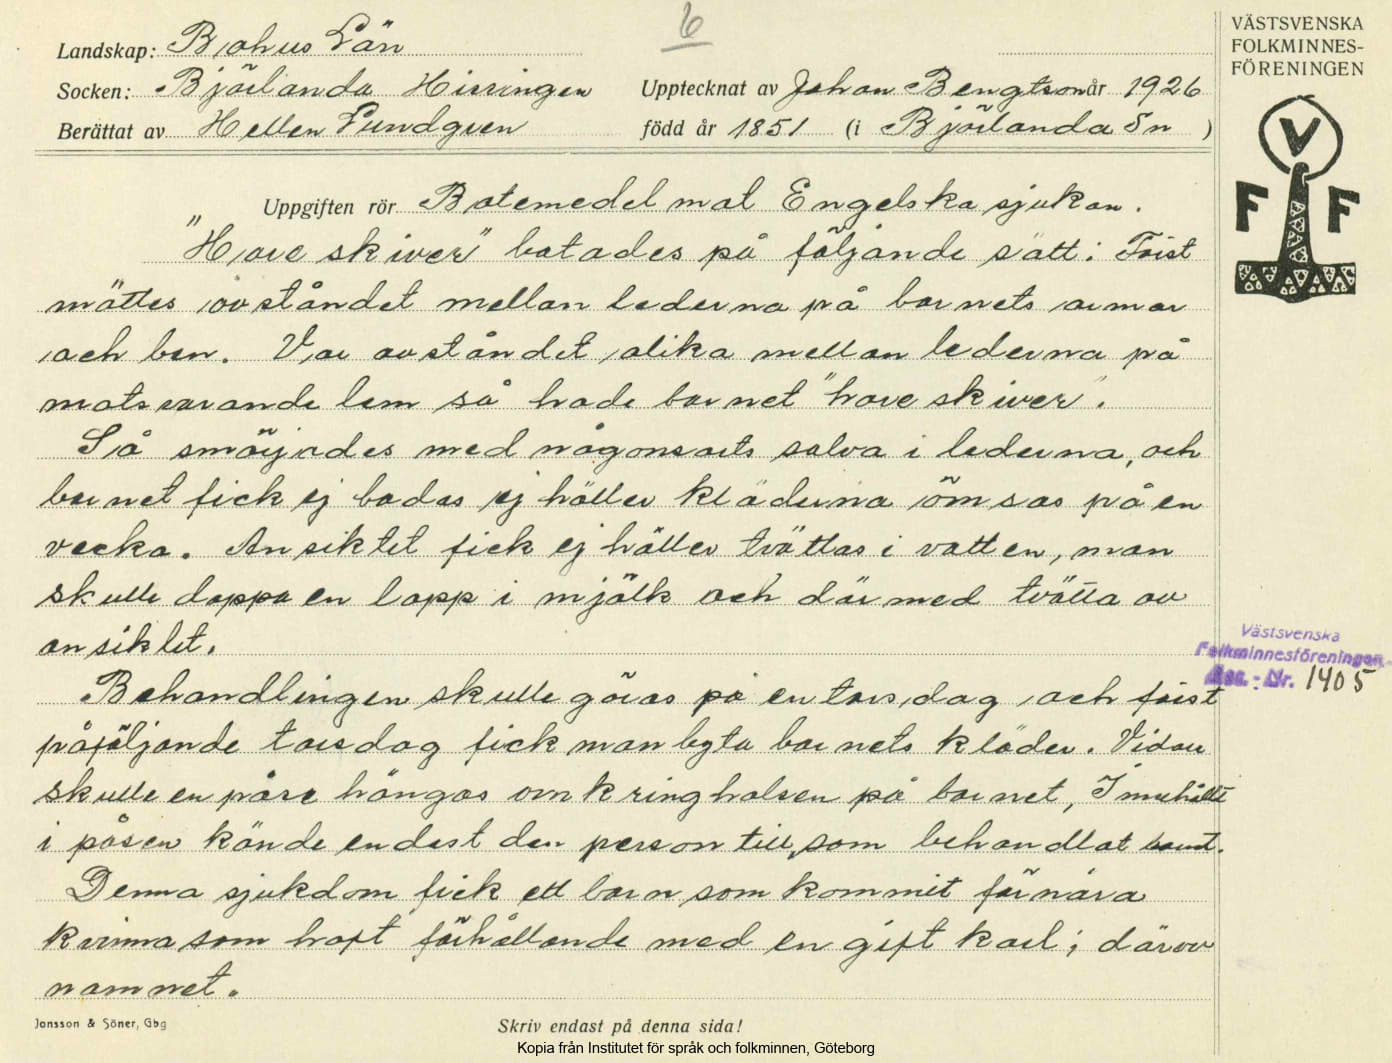 6
VÄSTSVENSKA
FOLKMINNES-
FÖRENINGEN
V
F F
Landskap: Bohus Län
Socken: Björlanda Hisingen Upptecknat av Johan Bengtson år 1926
Berättat av Hellen Lundgren född år 1851 (i Björlanda Sn )
Uppgiften rör Botemedel mot Engelska sjukan.
"Hore skiver" botades på följande sätt: Först
mättes avståndet mellan lederna på barnets armar
och ben. Var avståndet olika mellan lederna på
motsvarande lem så hade barnet "hore skiver".
Så smörjades med någonsorts salva i lederna, och
barnet fick ej badas ej häller kläderna ömsas på en
vecka. Ansiktet fick ej häller tvättas i vatten, man
skulle doppa en lapp i mjölk och därmed tvätta av
ansiktet.
Behandlingen skulle göras på en torsdag och först
påföljande torsdag fick man byta barnets kläder. Vidare
skulle en påse hängas omkring halsen på barnet, Innehållet
i påsen kände endast den person till, som behandlat barnet.
Denna sjukdom fick ett barn som kommit för nära
kvinna som haft förhållande med en gift karl; därav
namnet.
Västsvenska
Folkminnesföreningen
Acc. - Nr. 1405
Jonsson & Söner, Gbg
Skriv endast på denna sida!
Kopia från Institutet för språk och folkminnen, Göteborg